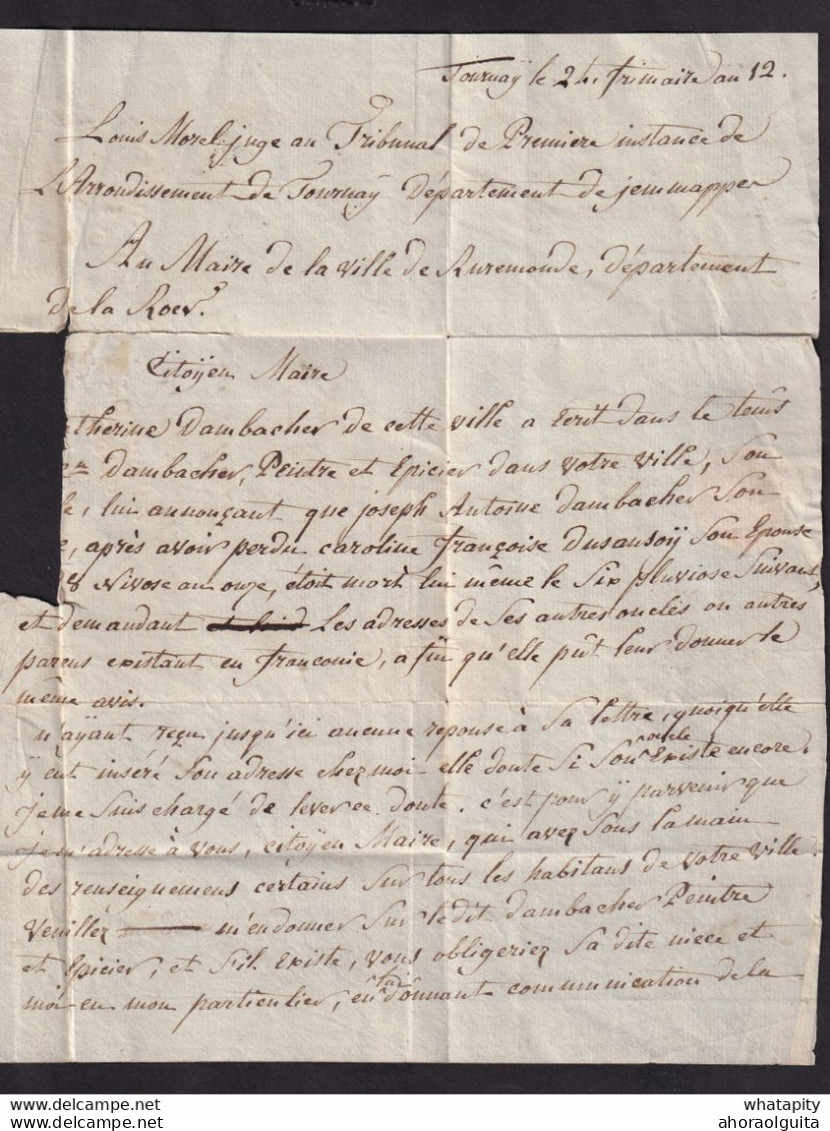 Tournaÿ le 24 frimaire an 12.
Louis Morel, juge au Tribunal de Premiere instance de
L'Arrondissement de Tournaÿ Département de jemmapper
Au Maire de la ville de Ruremonde, département
de la Roer.
Citoÿen Maire
therine Dambacher de cette ville a Ecrit dans le tems
Dambacher, Peintre et Epicier dans votre ville, son
lui annonçant que joseph Antoine Dambacher son
après avoir perdu caroline françoise Dusausoÿ son Epouse
8 Nivose an onze, étoit mort lui même le six pluviose suivant,
et demandant Les adresses de ses autres oncles ou autres
parens existant en franconie, afin qu'elle pût leur donner le
même avis.
n'aÿant reçu jusqu'ici aucune reponse à sa lettre, quoiqu'elle
ÿ eut inséré son adresse chez moi elle doute si son oncle Existe encore.
je me suis chargé de lever ce doute. c'est pour ÿ parvenir que
je m'adresse à vous, citoÿen Maire, qui avez sous la main
des renseignemens certains sur tous les habitans de votre ville.
Veuillez m'en donner sur ledit Dambacher Peintre
et Epicier, et s'il Existe, vous obligeriez sa dite niece et
moi en mon particulier, en lui donnant communication de la
whatapity
ahoraolguita